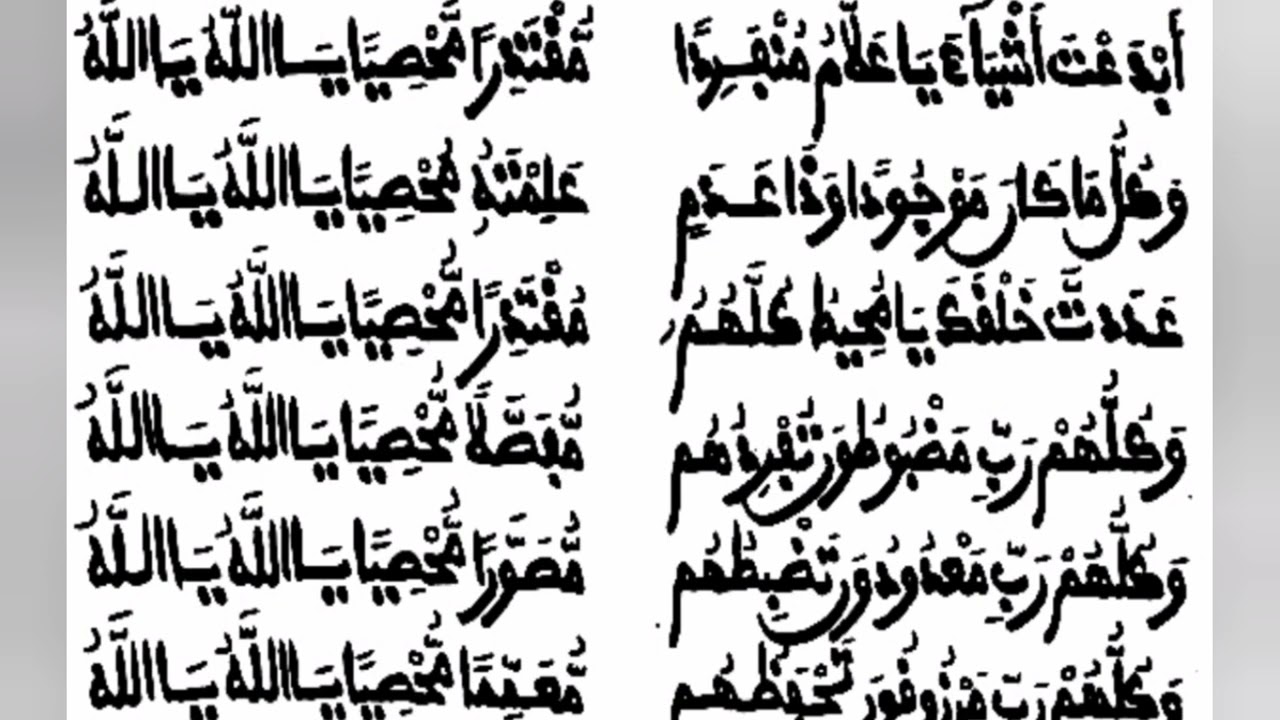 أَبْدَعْتَ أَشْيَآءَ يَا عَلَّامُ مُنْفَرِدًا مُقْتَدِرًا مُّحْصِيًا يَا اللَّهُ يَا اللَّهُ
وَكُلُّ مَا كَانَ مَوْجُودًا وَذَا عَدَمٍ عَلِمْتَهُ مُحْصِيًا يَا اللَّهُ يَا اللَّهُ
عَدَدتَّ خَلْقَكَ يَا مُحِيطُ كُلَّهُمُ مُقْتَدِرًا مُّحْصِيًا يَا اللَّهُ يَا اللَّهُ
وَكُلُّهُمْ رَبِّ مَضْبُوطٌ وَتُفْرِدُهُم مُّفَصَّلًا مُّحْصِيًا يَا اللَّهُ يَا اللَّهُ
وَكُلُّهُمْ رَبِّ مَعْدُودٌ وَتَضْبِطُهُم مُّصَوِّرًا مُّحْصِيًا يَا اللَّهُ يَا اللَّهُ
وَكُلُّهُمْ رَبِّ مَرْزُوقٌ وَتَحْفَظُهُم مُّحْصِيًا يَا اللَّهُ يَا اللَّهُ